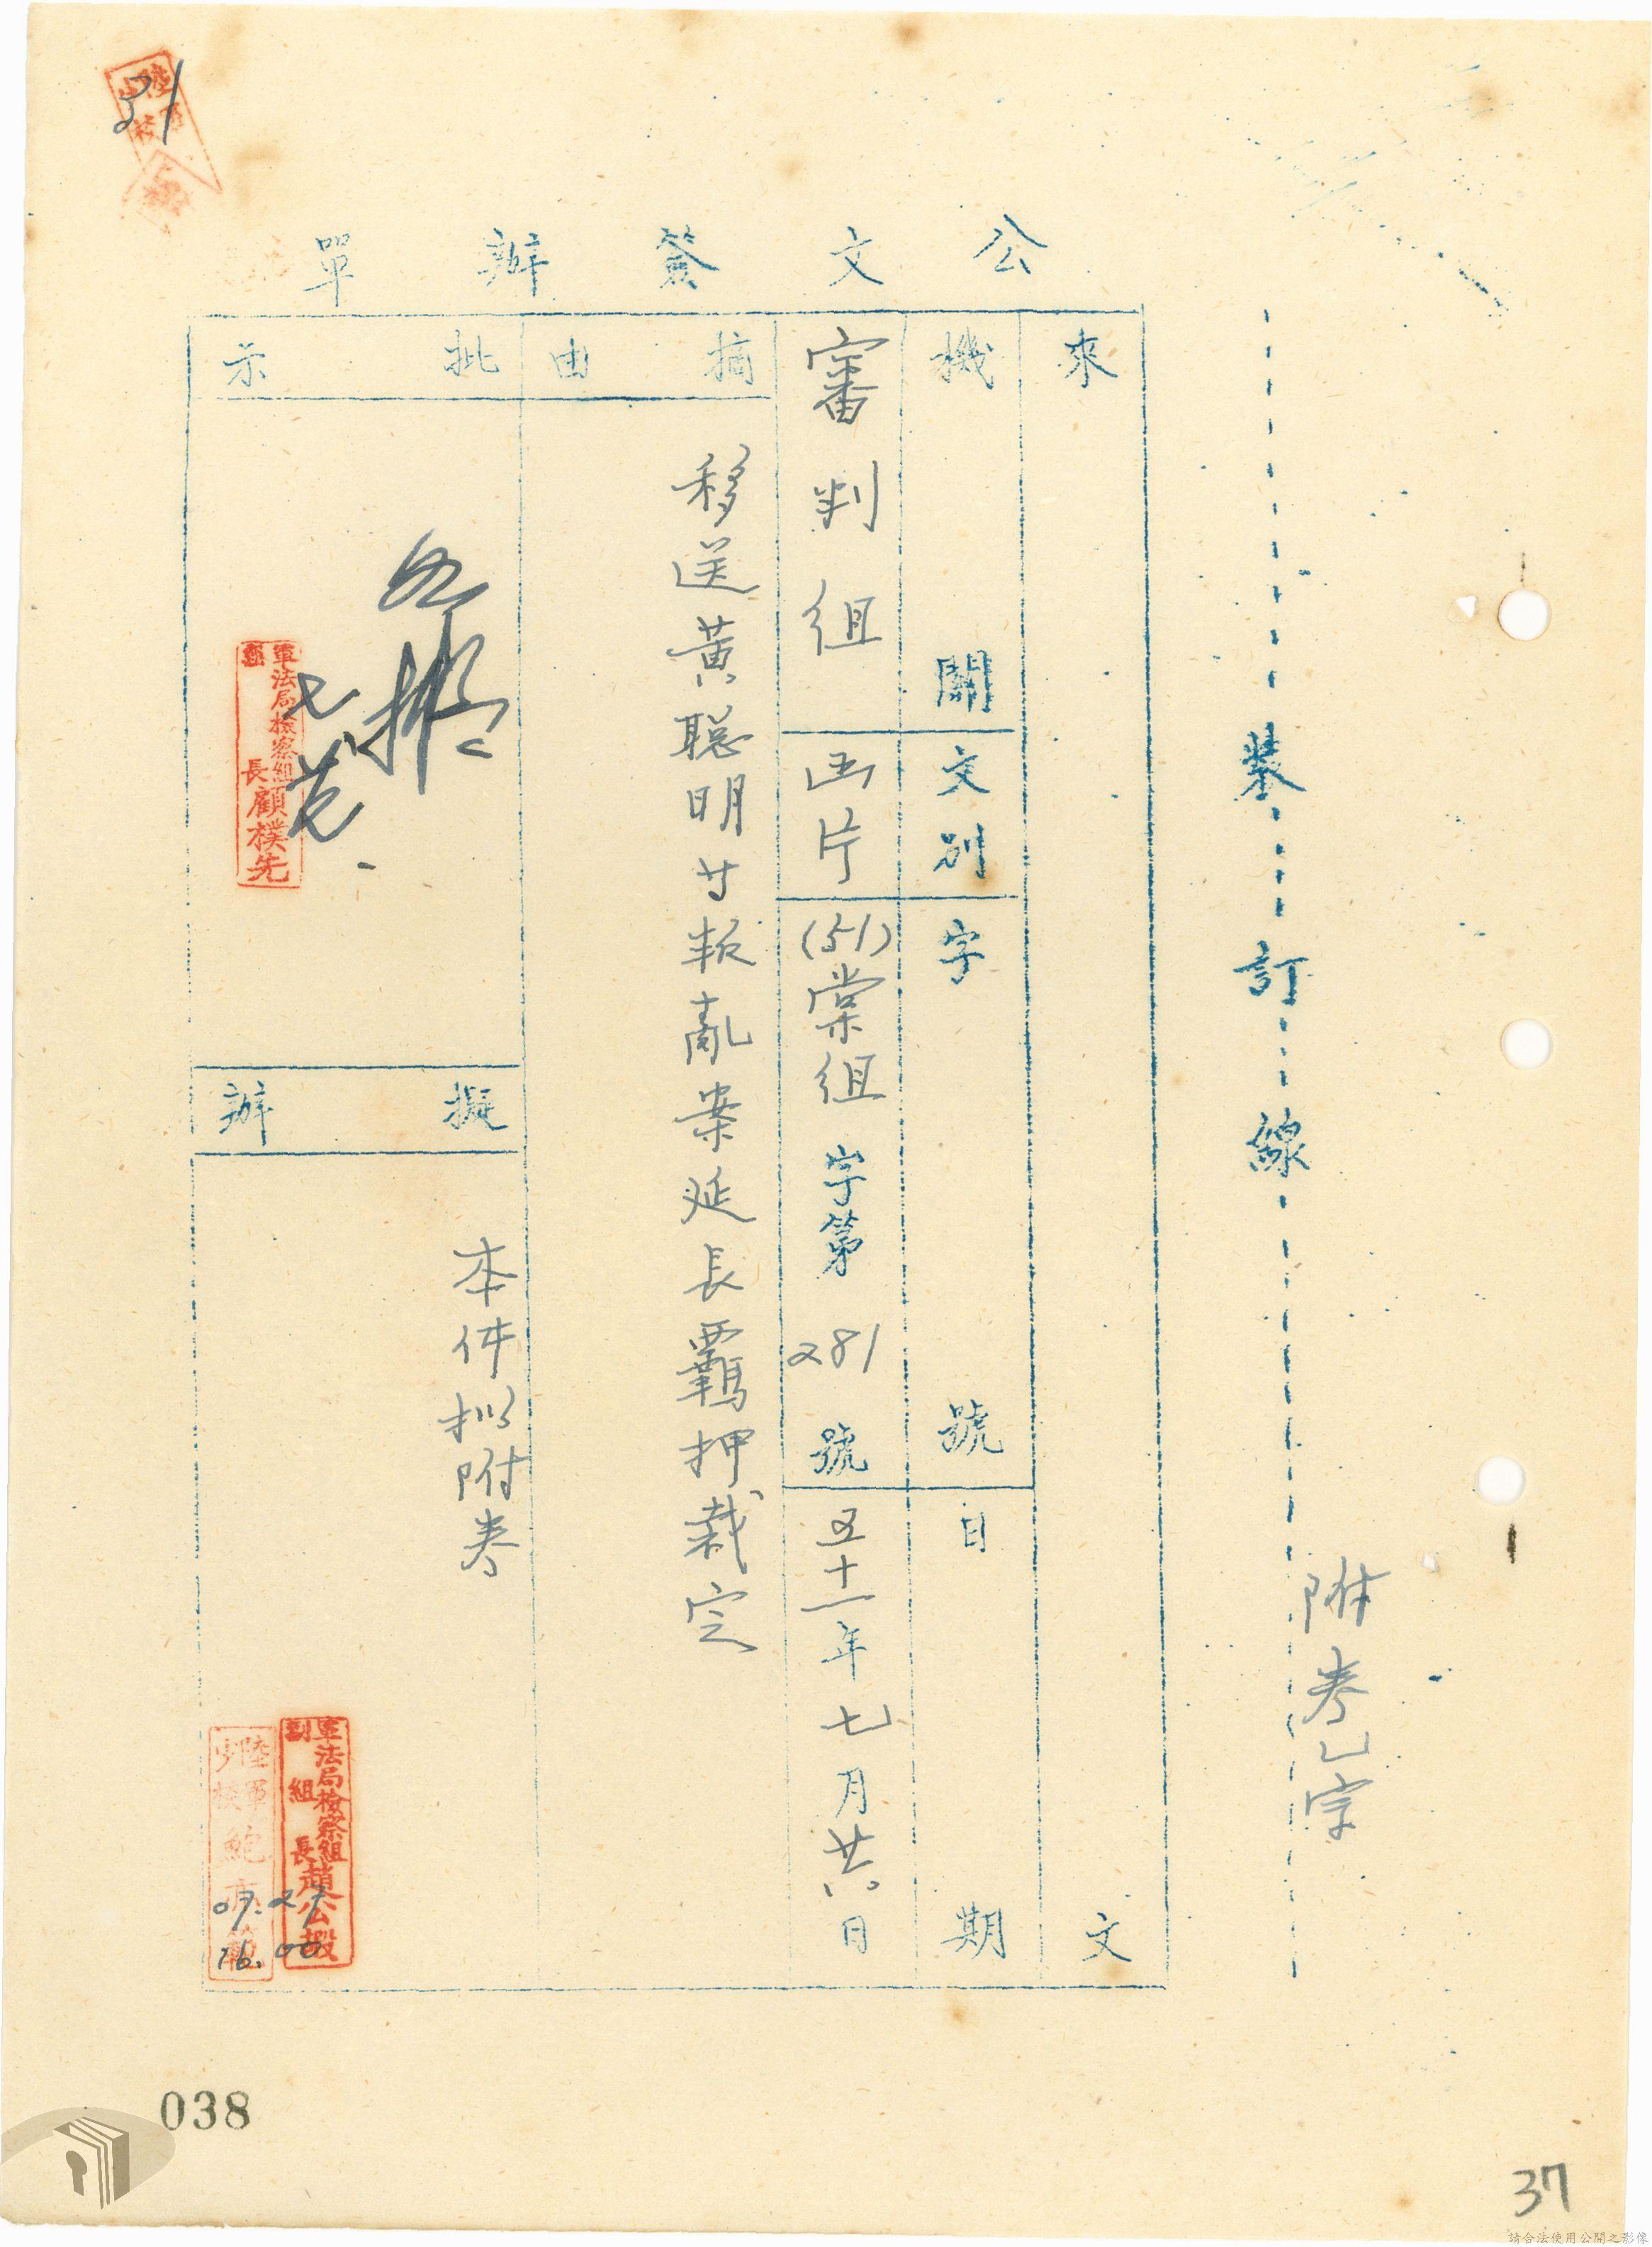 公文簽辦單
裝訂線
附卷乙宗
來文
機關
文別
字號
日期
審判組
函片
(51)棠組字第281號
五十一年七月廿六日
摘由
移送黃聰明廿叛亂案延長羈押裁定
批示
軍法局檢察組
長顧樸先
擬辦
本件拟附卷
軍法局檢察組
副組長趙公嘏
陸軍
少校鮑
07.27
16.00
31
陸軍
少校
038
37
請合法使用公開之影像